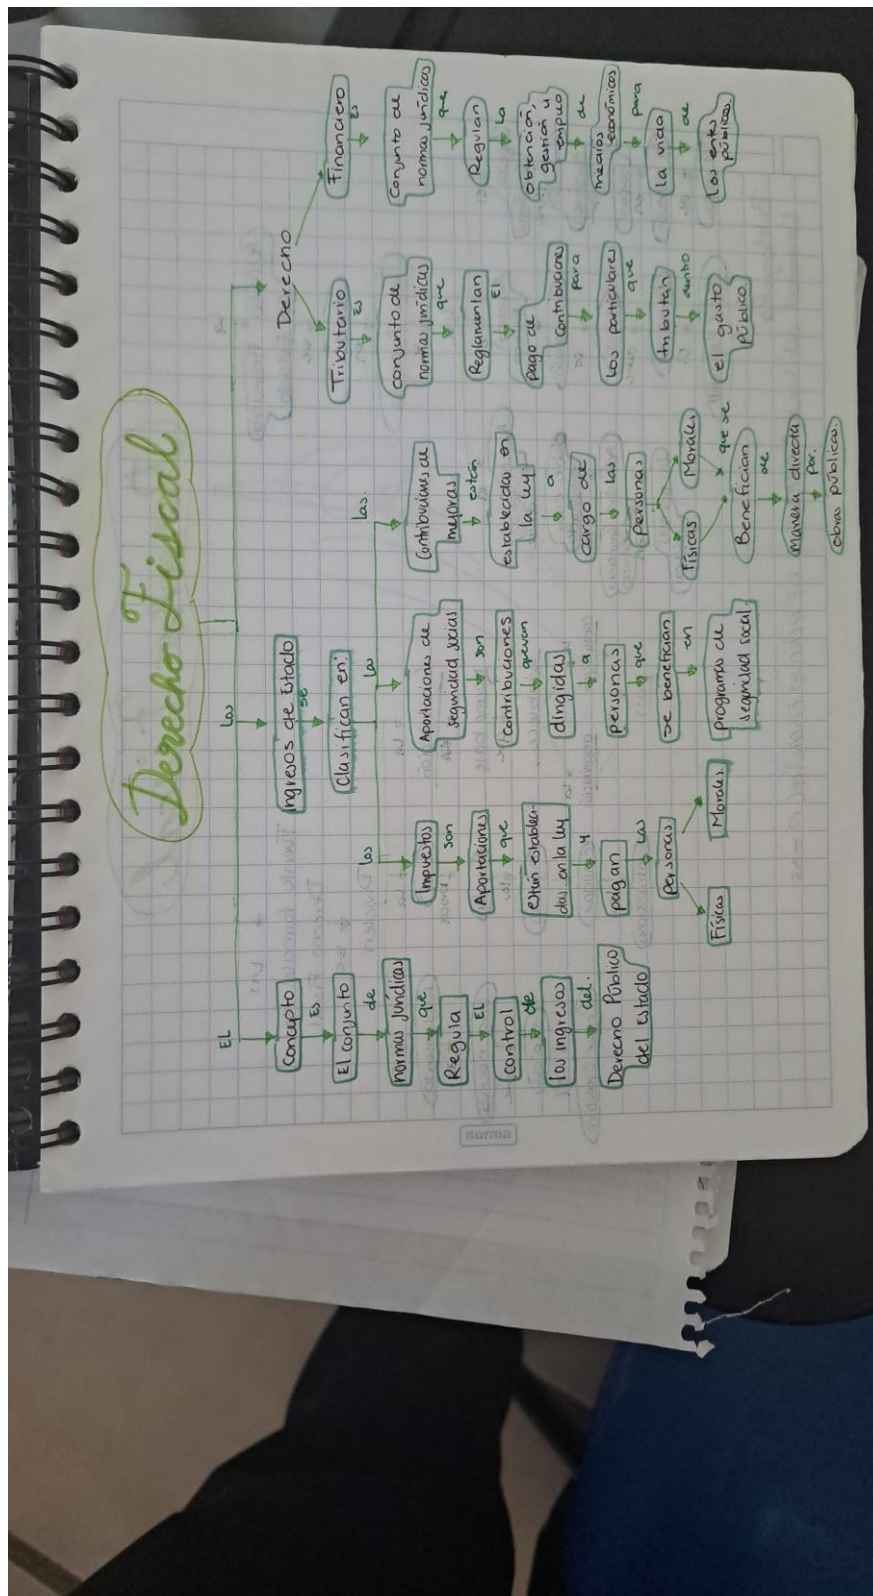 Derecho Fiscal
EL
Concepto
Es
El conjunto
de
normas jurídicas
que
Regula
EL
control
de
los ingresos
del.
Derecho Público
del Estado
Los
Ingresos de Estado
se
Clasifican en:
los
Impuestos
son
Aportaciones
que
están estableci-
das en la ley
y
pagan
Las
personas
Físicas
Morales
las
Aportaciones de
seguridad social
son
contribuciones
que van
dirigidas
a
personas
que
se benefician
en
programas de
seguridad social.
las.
Contribuciones de
mejoras
están
establecidas en
la ley
a
cargo de
las
personas
Físicas
Morales
que se
Benefician
de
manera directa
por.
obras públicas.
Derecho
Tributario
Es
conjunto de
normas jurídicas
que
Reglamentan
El
pago de
contribuciones
para
Los particulares
que
tributan
dentro
el gasto
público.
Financiero
Es
Conjunto de
normas jurídicas
que
Regulan
La
obtención,
gestión y
empleo
de
medios
económicos
para
la vida
de
los entes
públicos.
norma